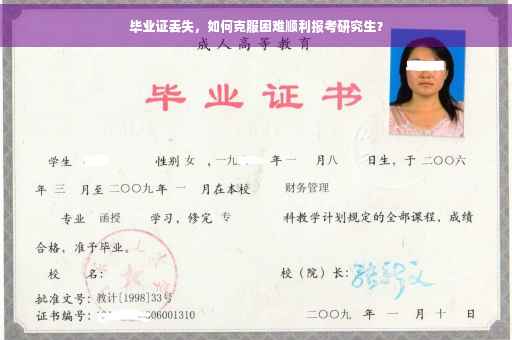 毕业证丢失，如何克服困难顺利报考研究生？
成人高等教育
毕业证书
学生 性别 女 ，一九 年一 月八 日生，于二〇〇六
年 三 月至二〇〇九年 一 月在本校 财务管理
专业 函授 学习，修完 专 科教学计划规定的全部课程，成绩
合格，准予毕业。
校 名： 校（院）长：
批准文号：教计[1998]33号
证书编号： 06001310 二〇〇九 年 一 月 十 日